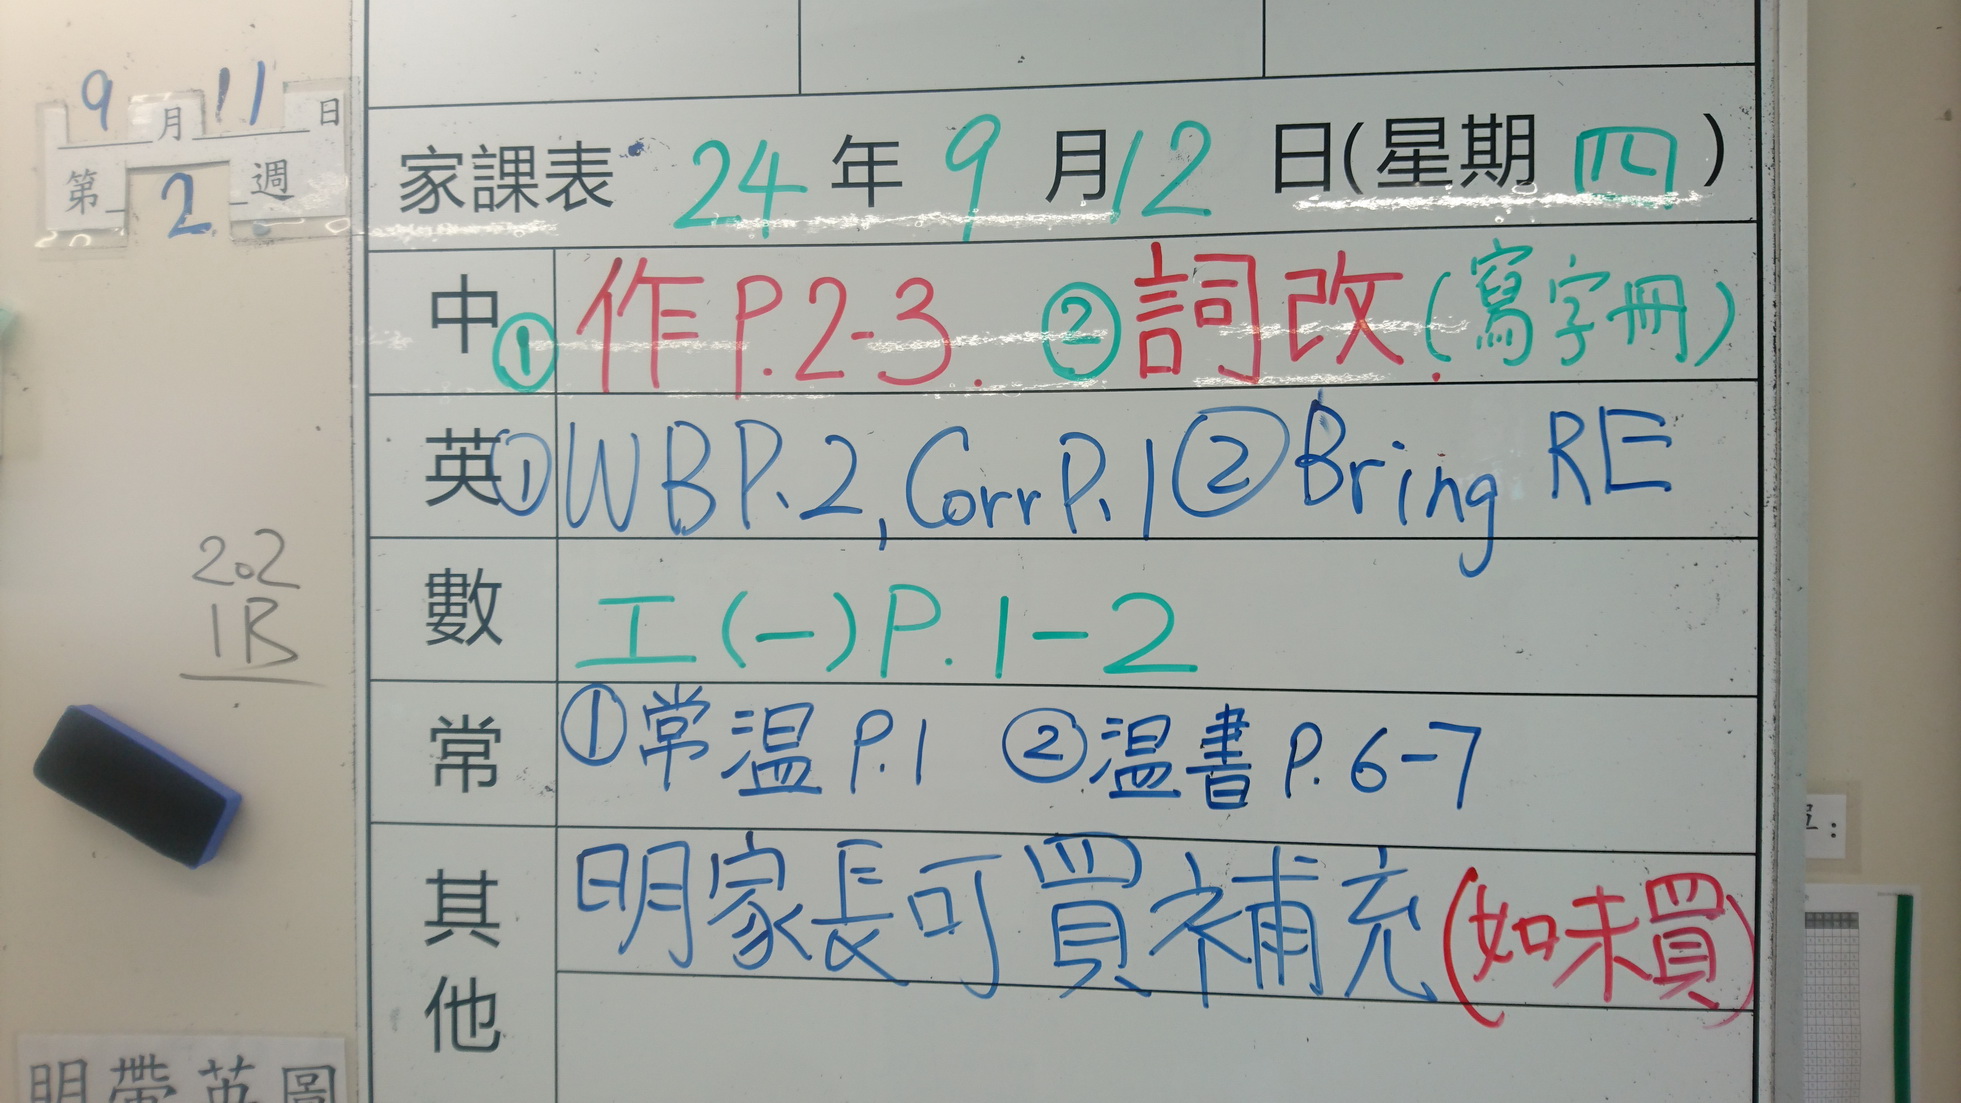 9月11日
第2週
家課表 24年9月12日(星期四)
中 ①作P.2-3. ②詞改(寫字冊)
英 ①WB P.2, Corr P.1 ②Bring RE
數 工(一)P.1-2
常 ①常溫P.1 ②溫書P.6-7
其他 明家長可買補充(如未買)
202
1B
明帶英圖